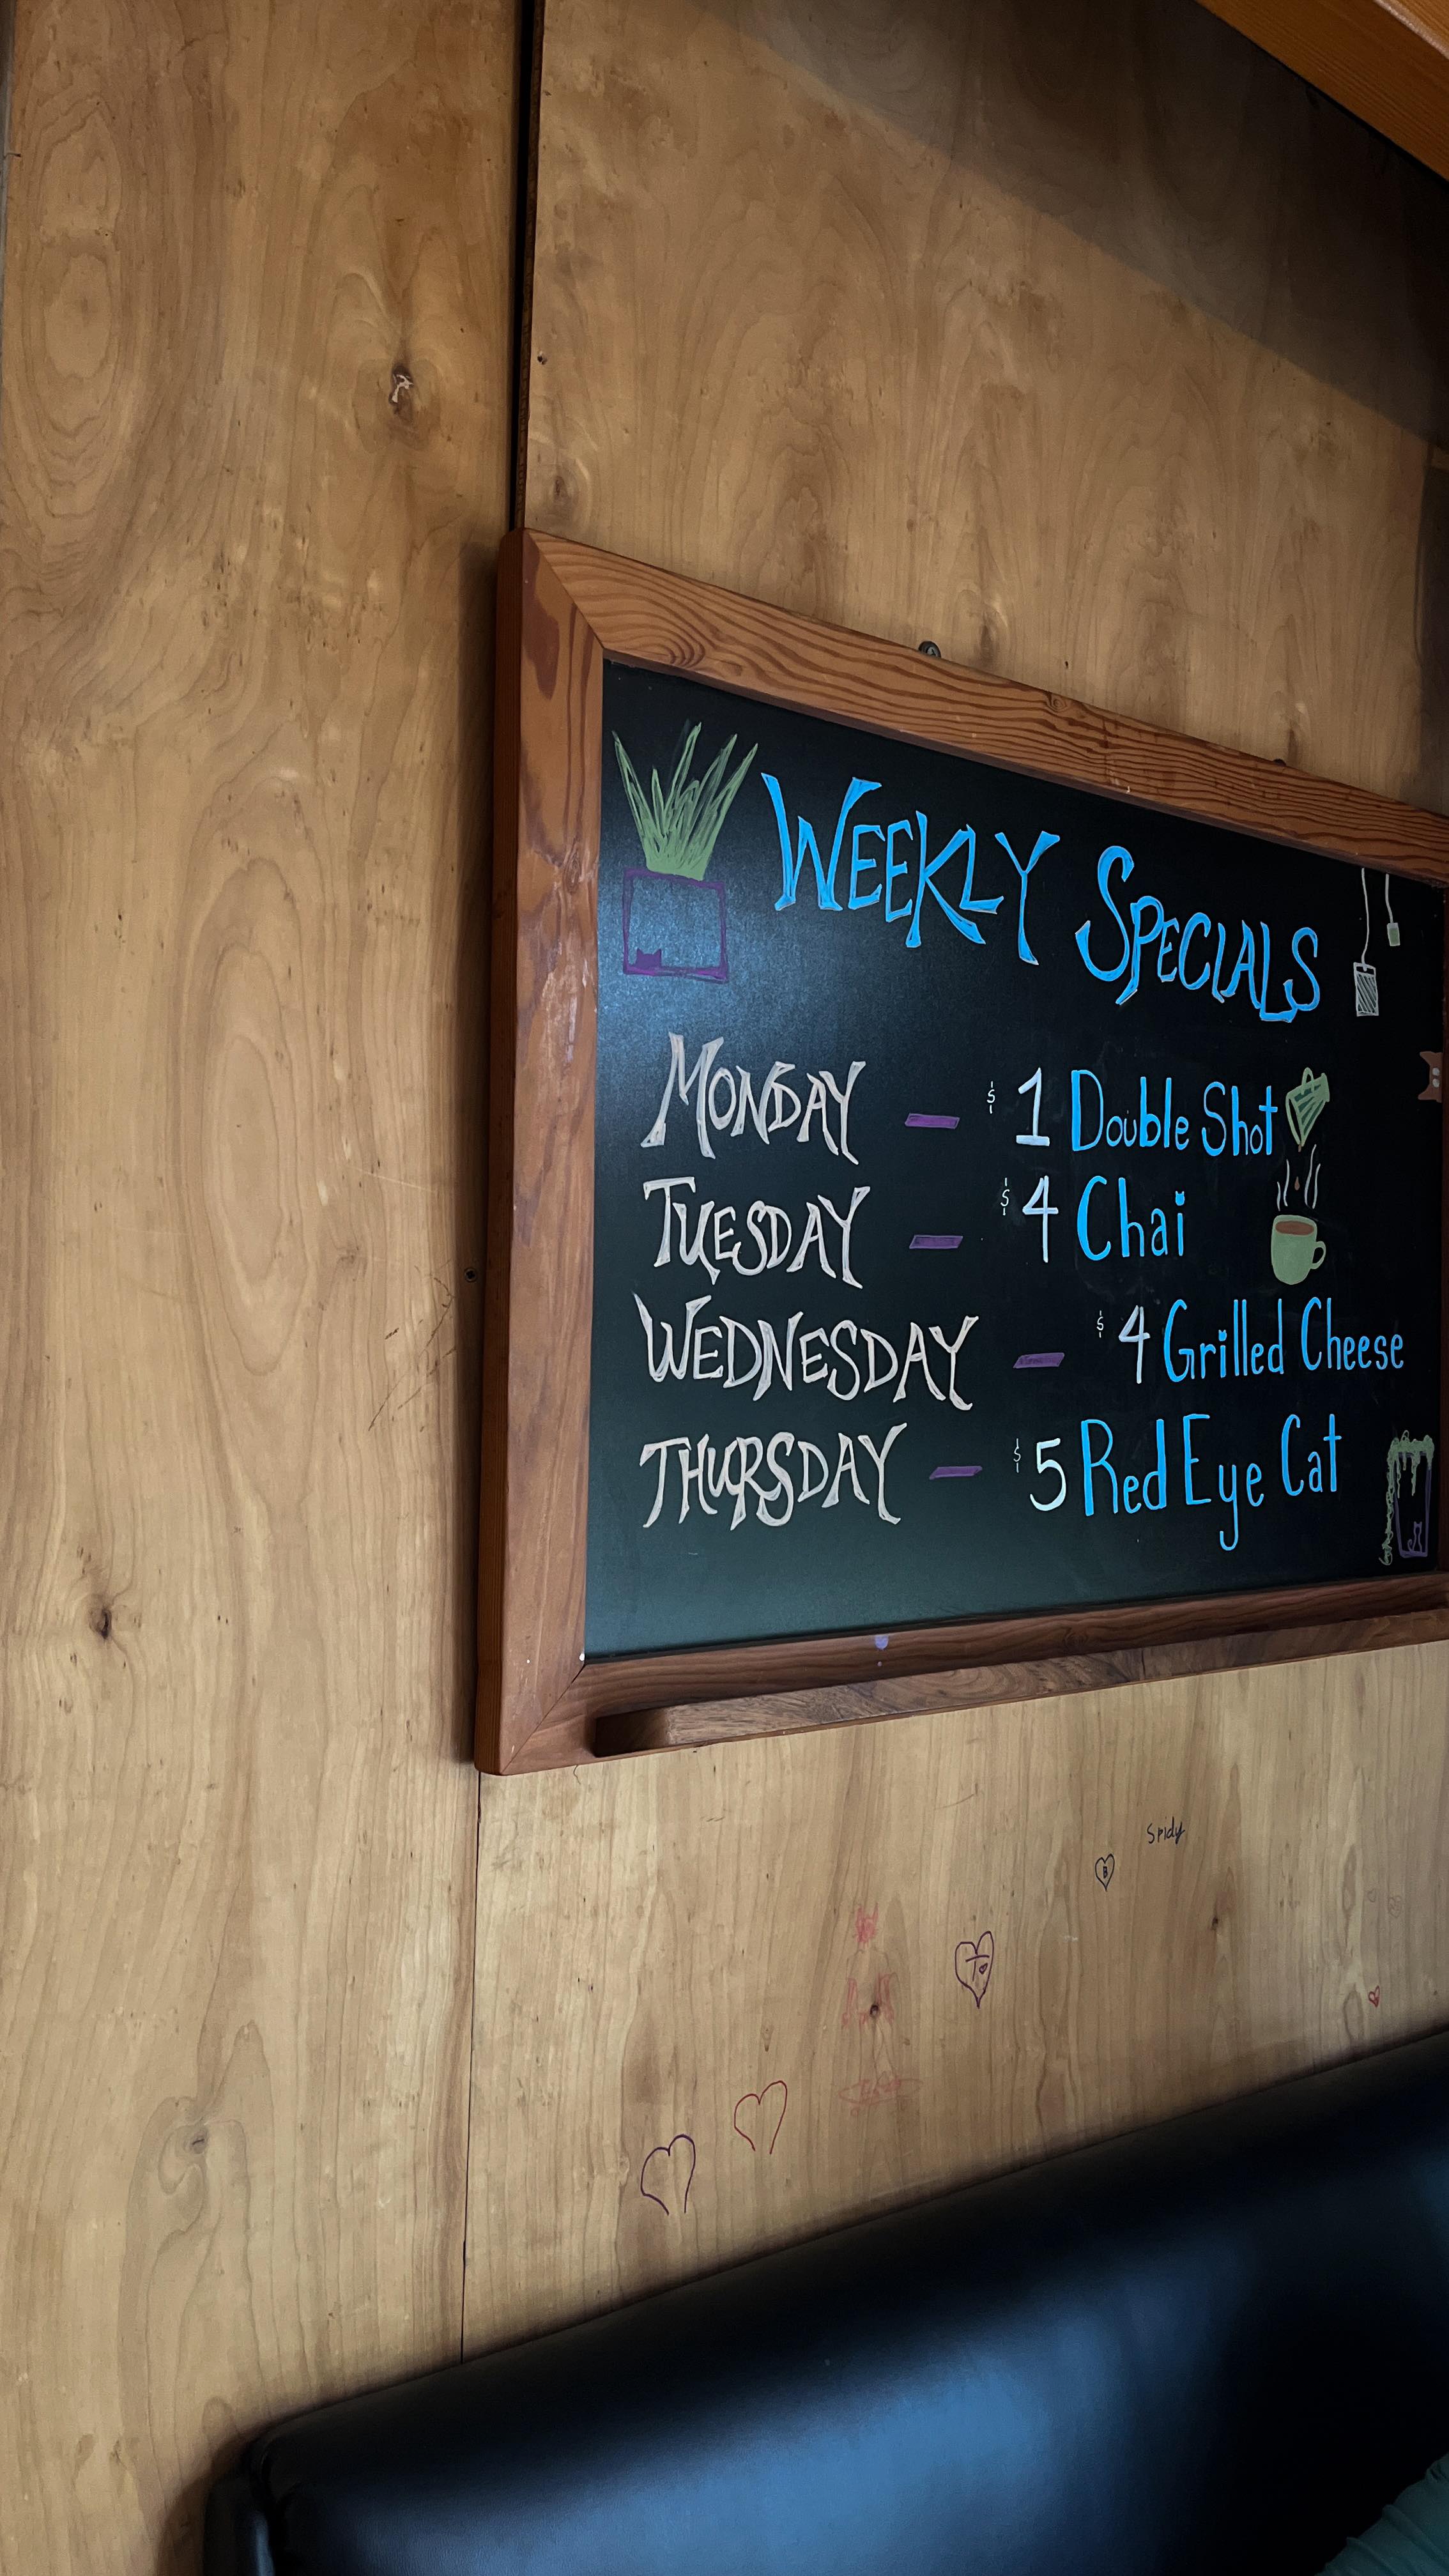 WEEKLY SPECIALS
MONDAY — $1 Double Shot
TUESDAY — $4 Chai
WEDNESDAY — $4 Grilled Cheese
THURSDAY — $5 Red Eye Cat
Spidy
B
T